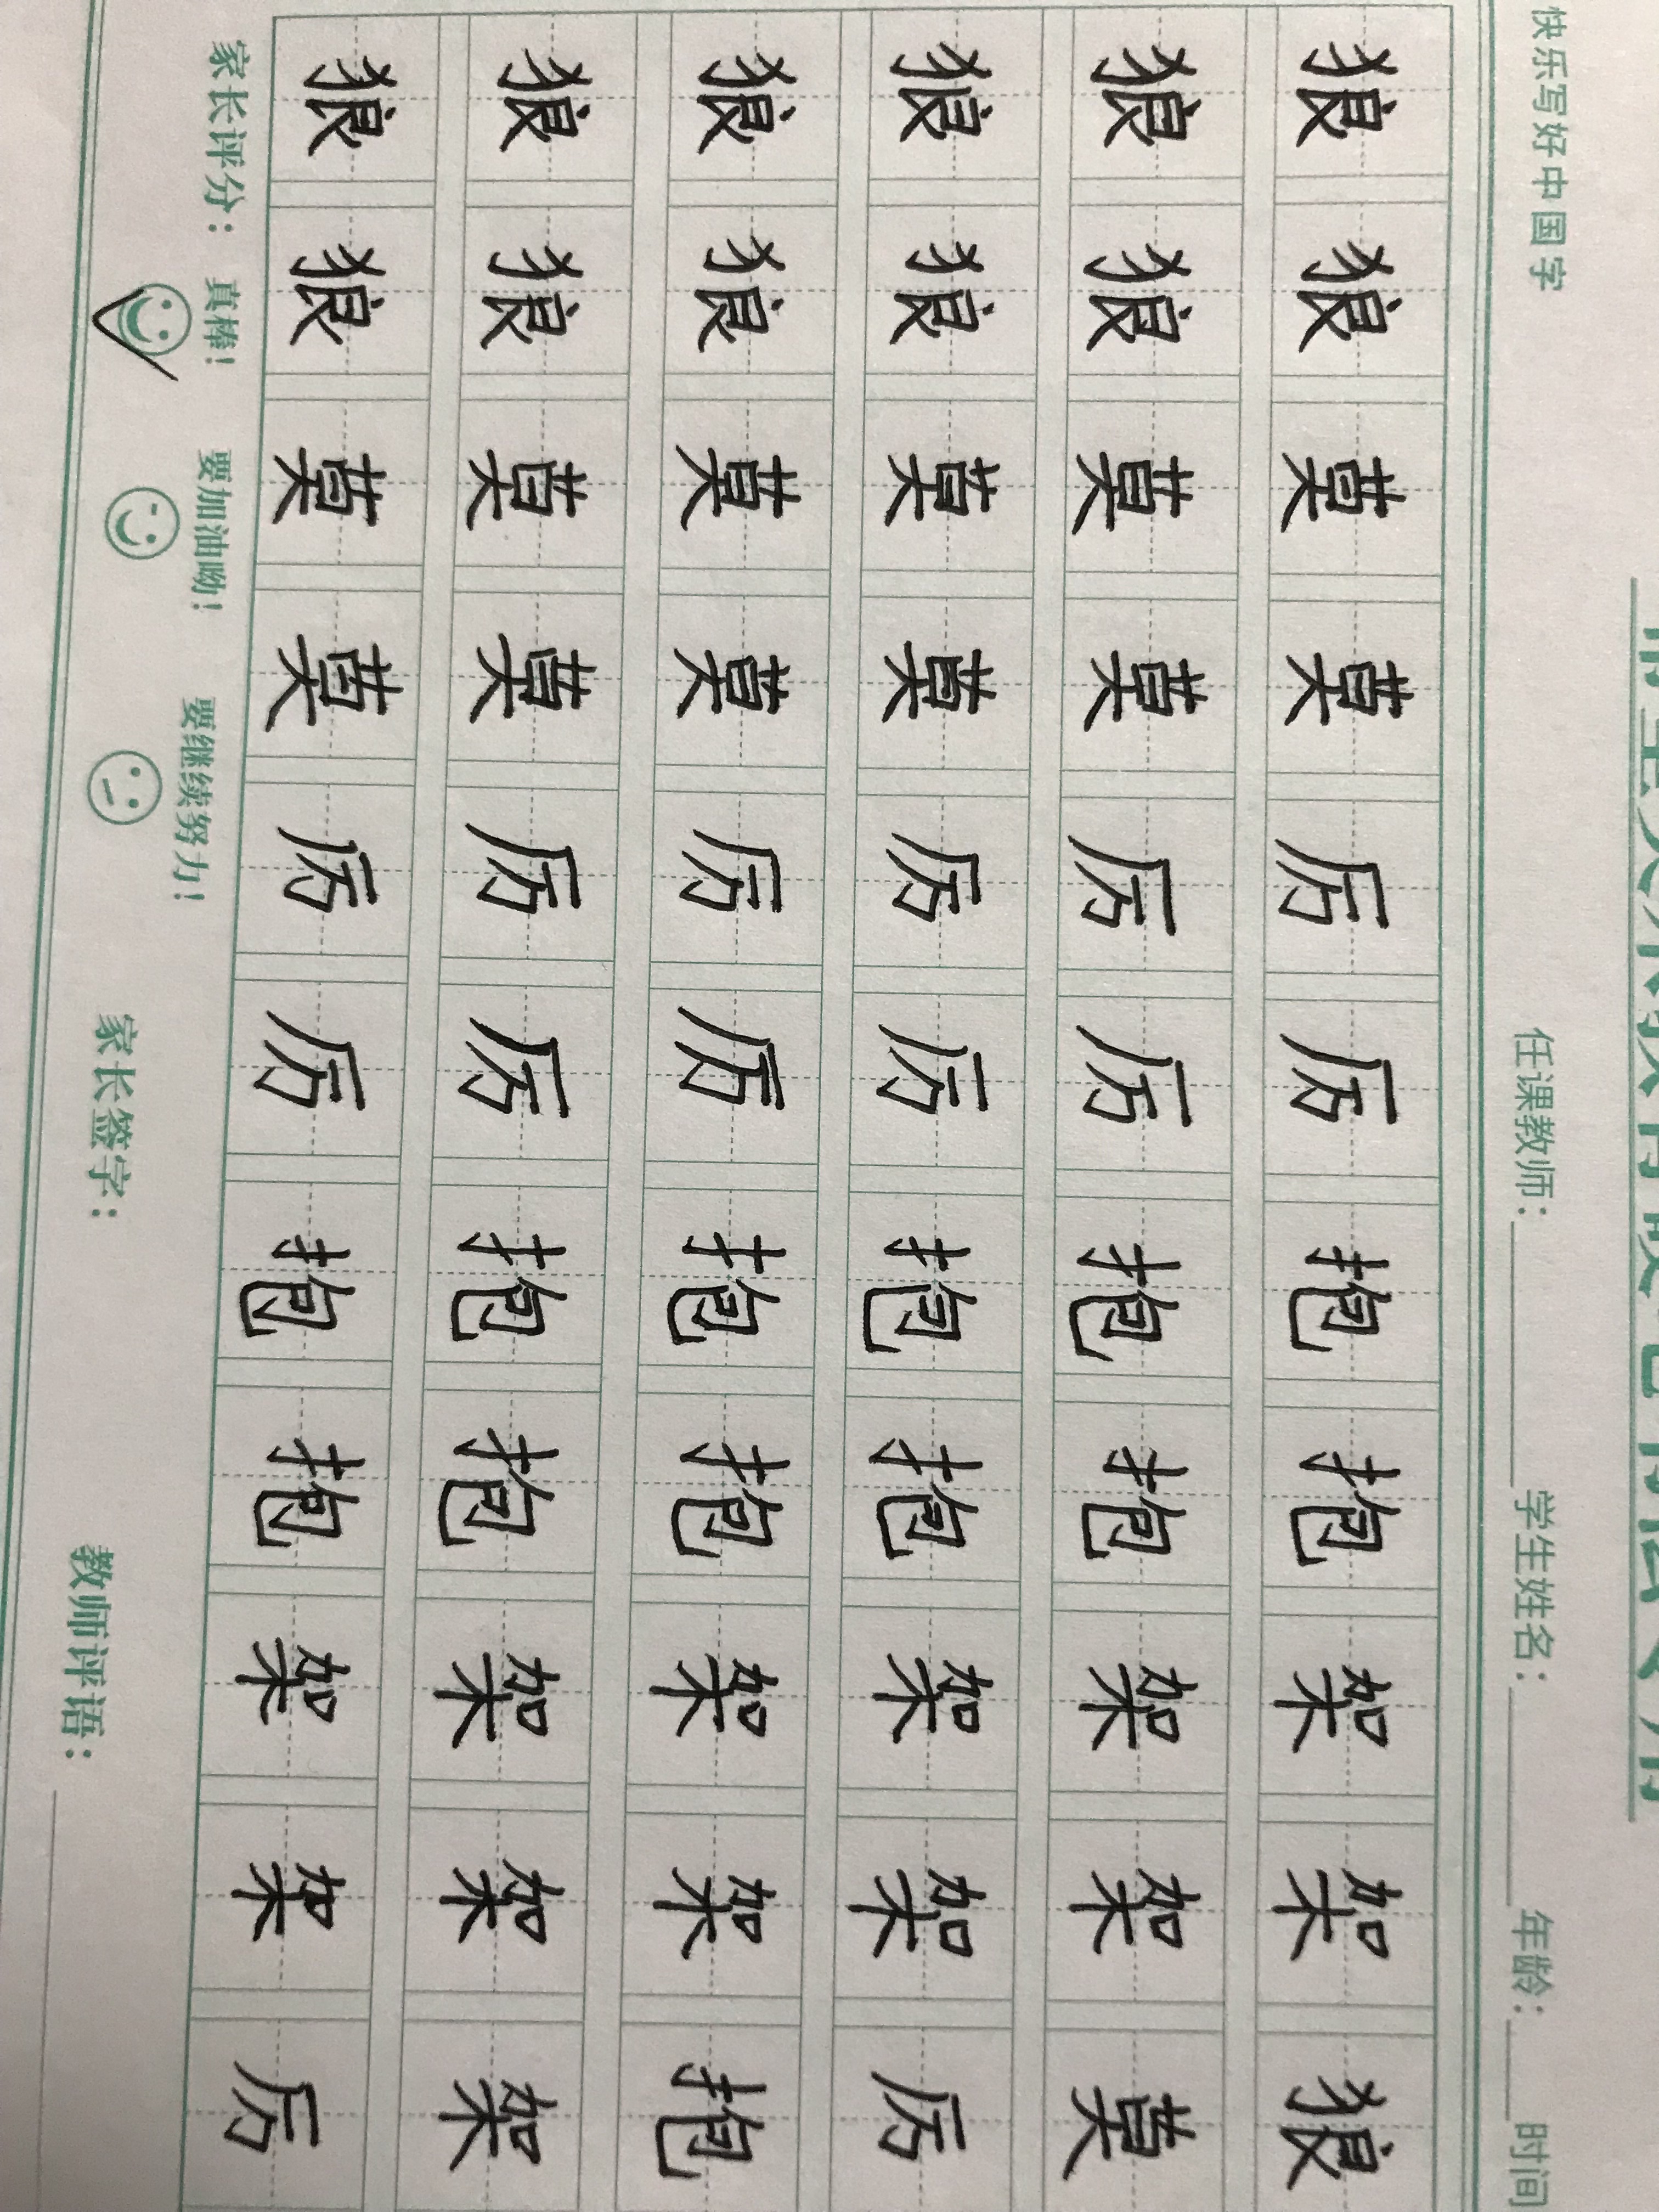 快乐写好中国字 任课教师： 学生姓名： 年龄： 时间
狼狼莫莫厉厉抱抱架架狼
狼狼莫莫厉厉抱抱架架莫
狼狼莫莫厉厉抱抱架架厉
狼狼莫莫厉厉抱抱架架抱
狼狼莫莫厉厉抱抱架架架
狼狼莫莫厉厉抱抱架架厉
家长评分： 真棒！ 要加油呦！ 要继续努力！ 家长签字： 教师评语：